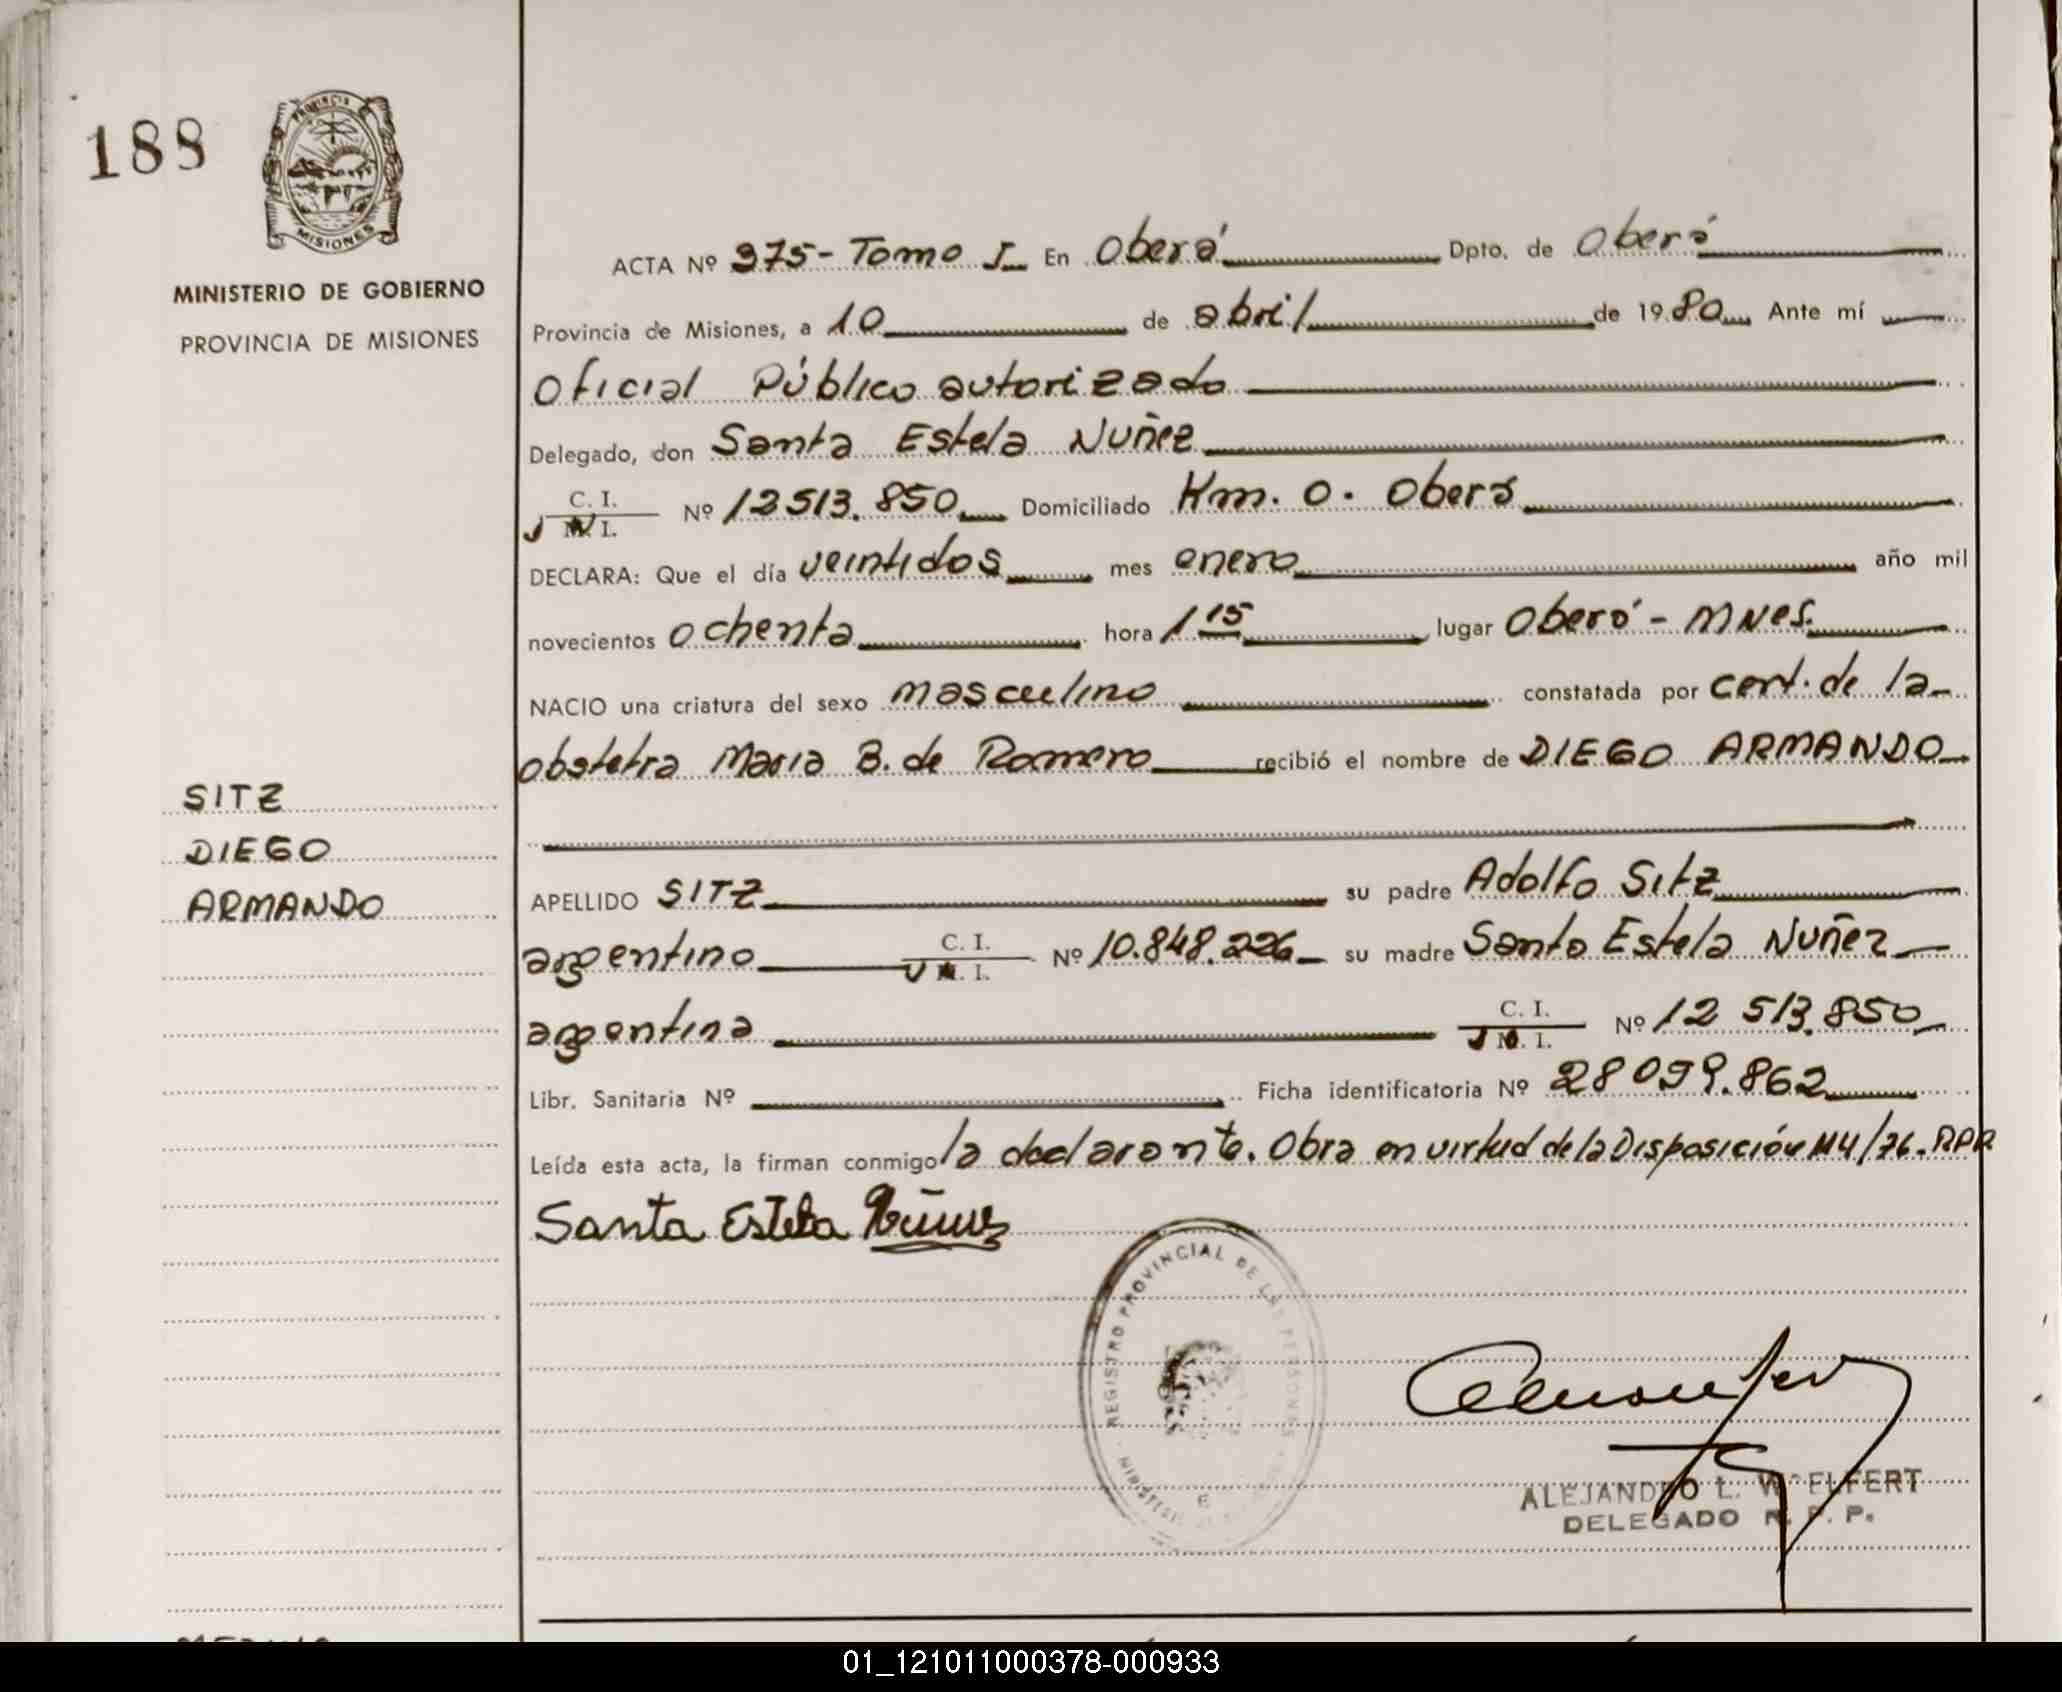 188
PROVINCIA
MISIONES
MINISTERIO DE GOBIERNO
PROVINCIA DE MISIONES
SITZ
DIEGO
ARMANDO
ACTA Nº 375 - Tomo I En Oberá Dpto. de Oberá
Provincia de Misiones, a 10 de abril de 1980 Ante mí
Oficial Público autorizado
Delegado, don Santa Estela Nuñez
C. I.
M. I. Nº 12513.850 Domiciliado Km. 0. Oberá
DECLARA: Que el día veintidos mes enero año mil
novecientos ochenta hora 1 15 lugar Oberá - Mnes.
NACIO una criatura del sexo masculino constatada por cert. de la
obstetra Maria B. de Romero recibió el nombre de DIEGO ARMANDO
APELLIDO SITZ su padre Adolfo Sitz
argentino C. I. M. I. Nº 10.848.226 su madre Santa Estela Nuñez
argentina C. I. M. I. Nº 12 513.850
Libr. Sanitaria Nº Ficha identificatoria Nº 28 099.862
Leída esta acta, la firman conmigo la declarante. Obra en virtud de la Disposición 114/76. RPP
Santa Estela Nuñez
REGISTRO PROVINCIAL DE LAS PERSONAS
ALEJANDRO L. ELFERT
DELEGADO R. P. P.
01_121011000378-000933